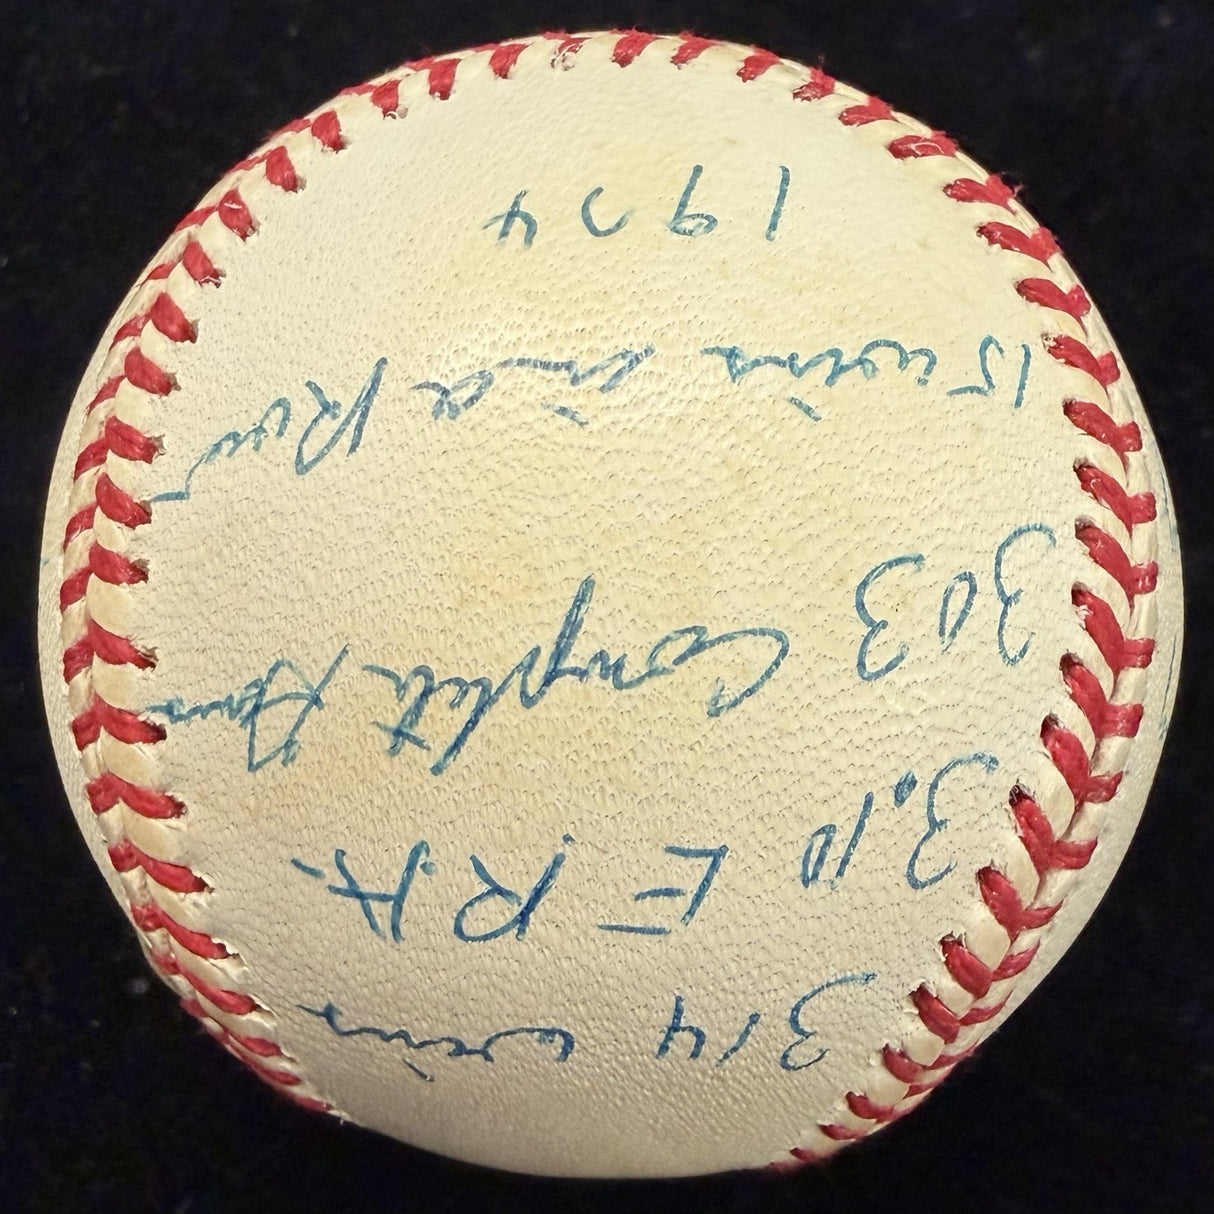 314 wins
3.10 E.R.A.
303 Complete Games
15 wins in a Row
1974